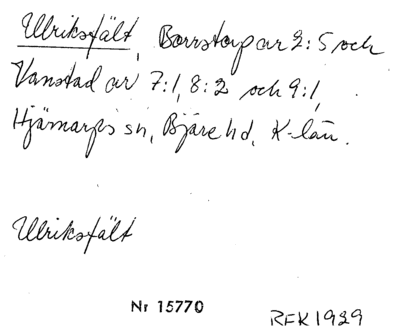 Ulriksfält, Borrstorp ar 2:5 och
Vanstad ar 7:1, 8:2 och 9:1,
Hjärnarps sn, Bjäre hd, K-län.
Ulriksfält
Nr 15770
REK 1929